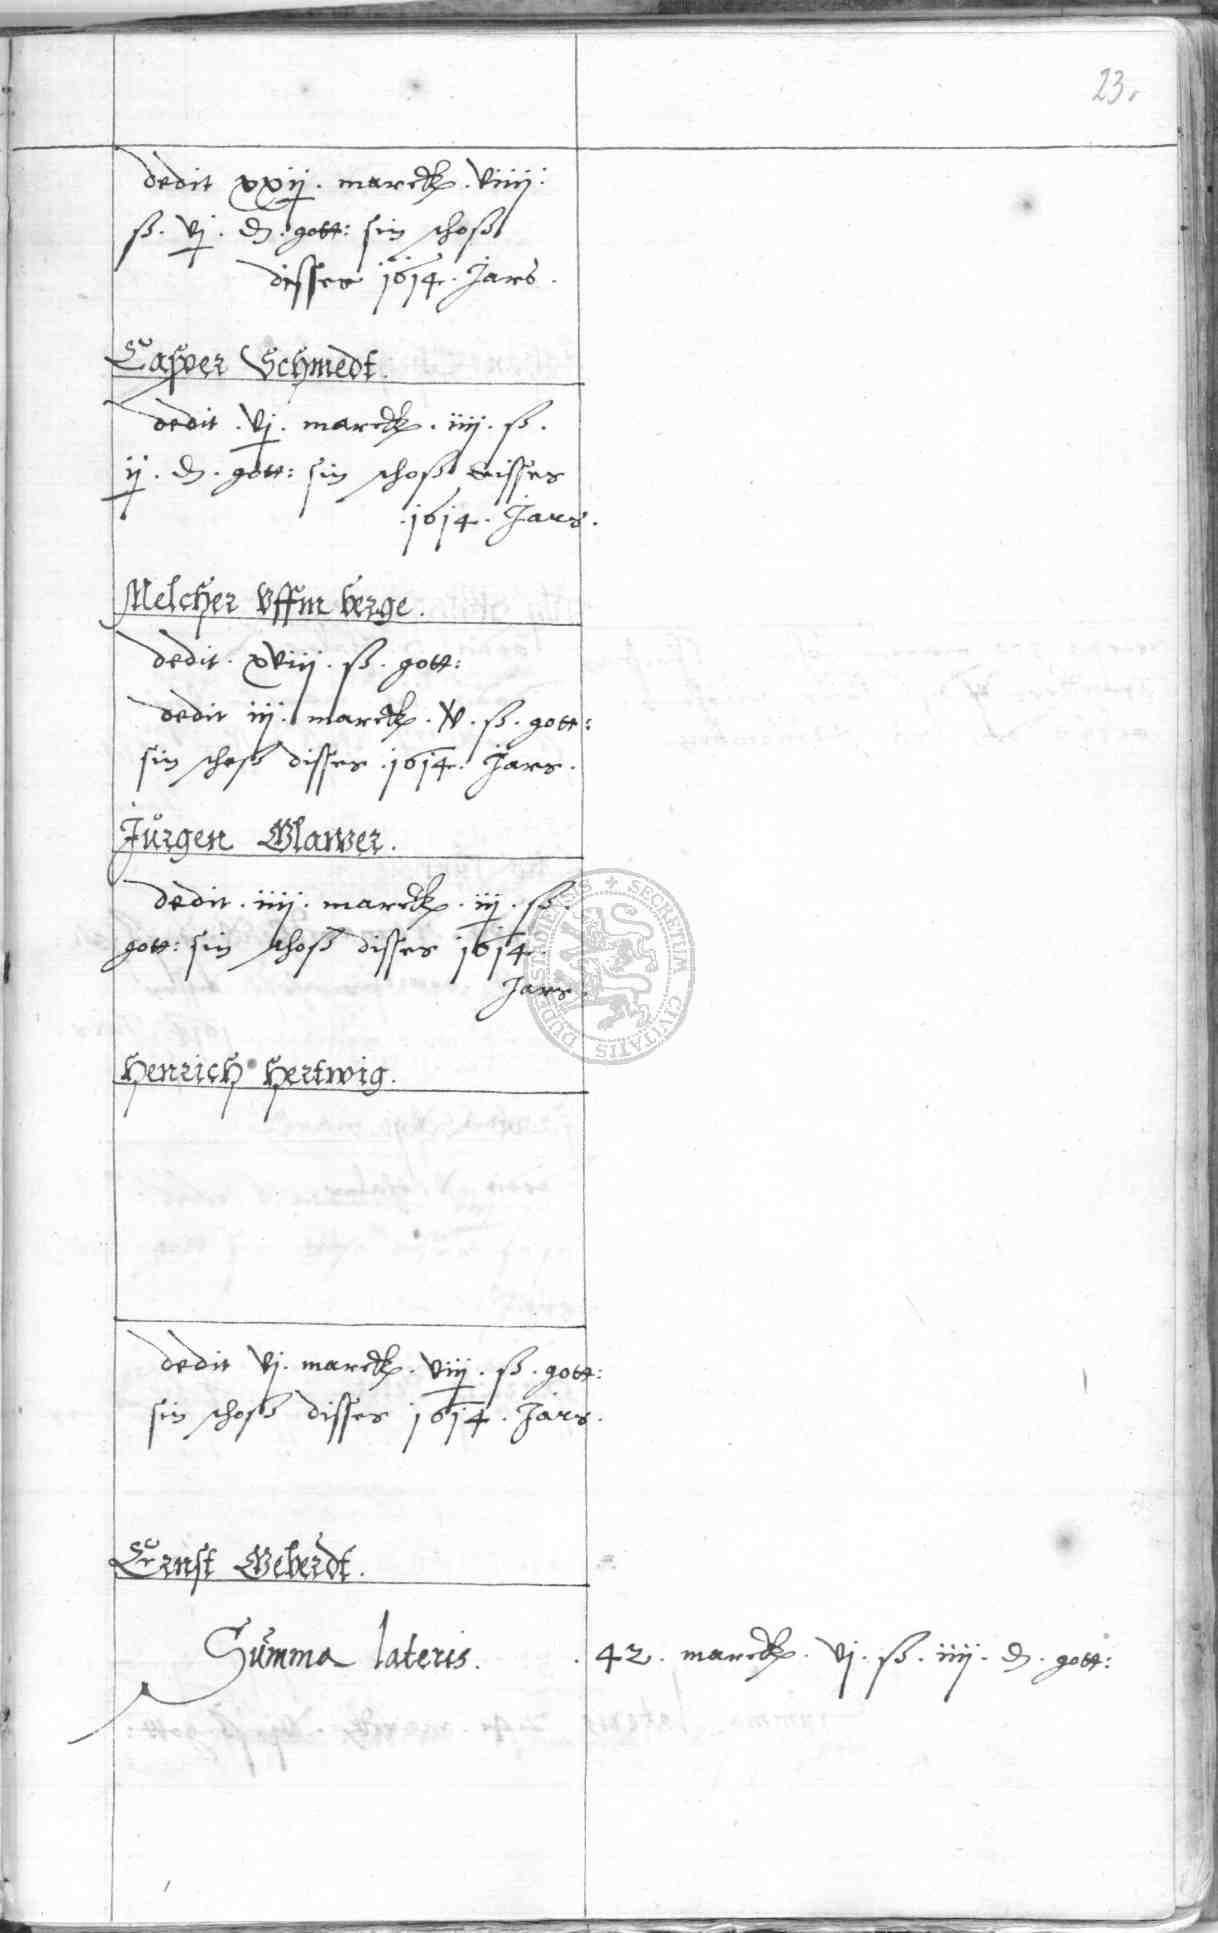 23.
dedit xxij. marck. viiij.
ß. vj. d. gott: sin schoß
disses 1614. Jars.
Casper Schmedt.
dedit. vj. marck. iiij. ß.
ij. d. gott: sin schoß disses
.1614. Jars.
Melcher Uffm berge.
dedit. xviij. ß. gott:
dedit iij. marck. V. ß. gott:
sin schoß disses .1614. Jars.
Jürgen Glawer.
dedit. iiij. marck. iij. ß.
gott: sin schoß disses 1614.
Jars.
Henrich Hertwig.
dedit vj. marck. viij. ß. gott:
sin schoß disses 1614. Jars.
Ernst Geberdt.
Summa lateris. . 42. marck. vj. ß. iiij. d. gott:
SECRETUM CIVITATIS DUDERSTADIENSIS